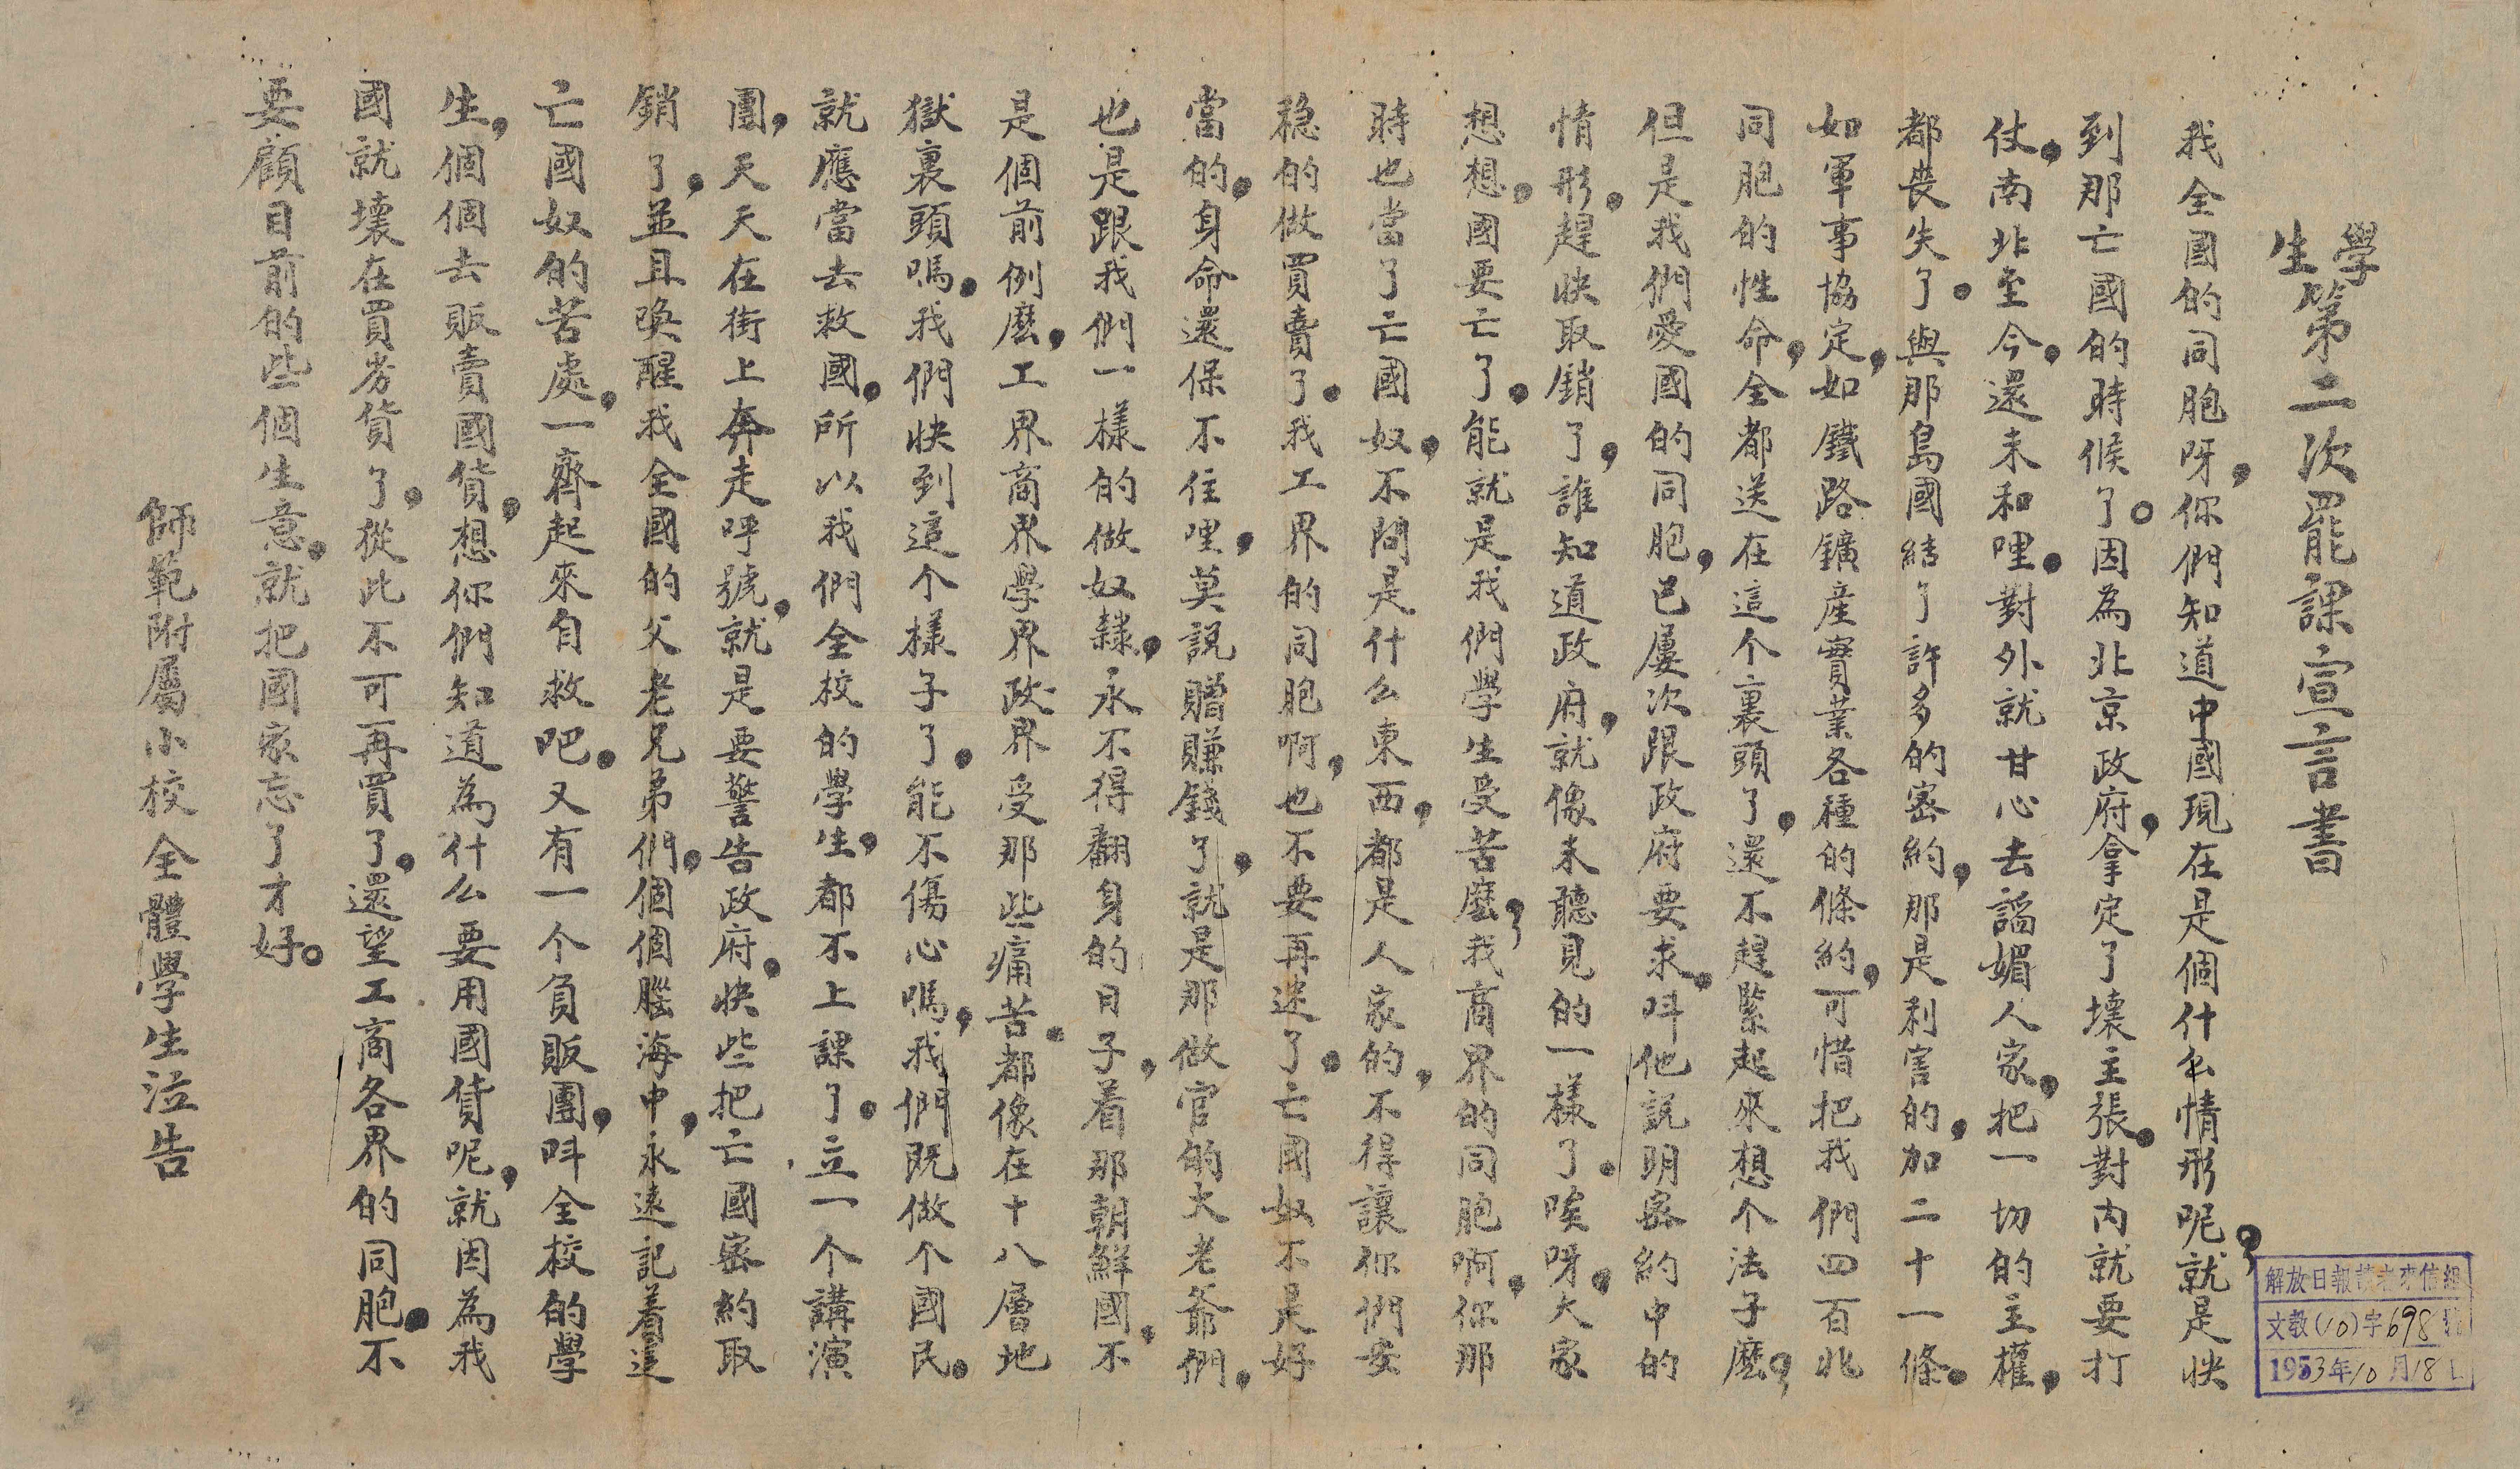 學生第二次罷課宣言書
我全國的同胞呀，你們知道中國現在是個什么情形呢？就是快
到那亡國的時候了。因為北京政府，拿定了壞主張。對内就要打
仗，南北至今，還未和哩。對外就甘心去謟媚人家，把一切的主權，
都丧失了。與那島國結了許多的密約，那是利害的，加二十一條。
如軍事協定，如鐵路鑛産實業各種的條約，可惜把我們四百兆
同胞的性命，全都送在這个裏頭了，還不趕緊起來想个法子麽？
但是我們愛國的同胞，已屢次跟政府要求，呌他説明密約中的
情形。趕快取銷了，誰知道政府，就像未聽見的一樣了。唉呀，大家
想想，國要亡了。能就是我們學生受苦麽？我商界的同胞啊，你那
時也當了亡國奴，不問是什么東西，都是人家的，不得讓你們安
稳的做買賣了。我工界的同胞啊，也不要再迷了。亡國奴不是好
當的，身命還保不住哩，莫説贈賺錢了，就是那做官的大老爺們，
也是跟我們一樣的做奴隸，永不得翻身的日子，着那朝鮮國，不
是個前例麽，工界商界學界政界受那些痛苦。都像在十八層地
獄裏頭嗎。我們快到這个樣子了。能不傷心嗎，我們既做个國民。
就應當去救國。所以我們全校的學生，都不上課了。立一个講演
團，天天在街上奔走呼號，就是要警告政府。快些把亡國密約取
銷了，並且喚醒我全國的父老兄弟們，個個腦海中，永遠記着這
亡國奴的苦處，一齊起來自救吧。又有一个負販團，呌全校的學
生，個個去販賣國貨，想你們知道為什么要用國貨呢，就因為我
國就壞在買劣貨了，從此不可再買了，還望工商各界的同胞，不
要顧目前的些個生意。就把國家忘了才好。
師範附屬小校全體學生泣告
解放日報讀者來信組
文教(10)字698號
1953年10月18日